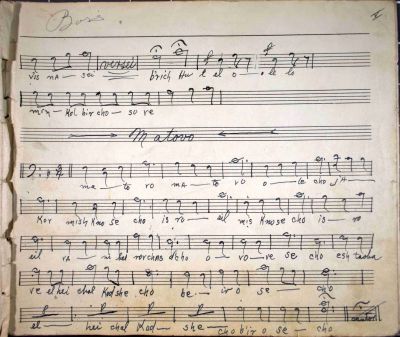 Bas.
I
vis na — sei versei b'rich Hu l el o — le lo
min — Kol bir cho — so ve
Matovo
ma — to vo ma — to vo o — le cho ja —
Kov mish knose cho is ro — eil mis knose cho is — ro
eil va — ni be rov chas d'cho o — vo — ve se cho esh tacha
ve el hei chal Kod she cho be — iro se — cho
el — hei chal Kod — she — cho bir o se — cho